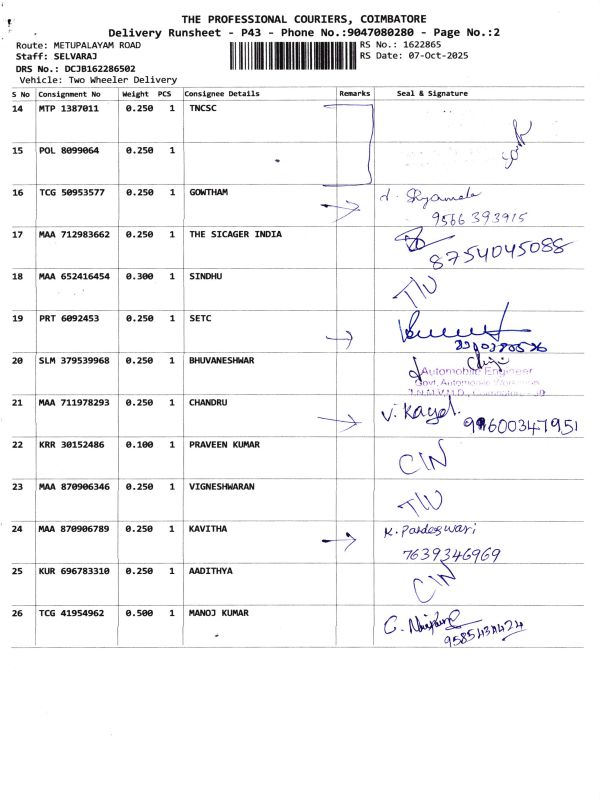 THE PROFESSIONAL COURIERS, COIMBATORE
Delivery Runsheet - P43 - Phone No.:9047080280 - Page No.:2
Route: METUPALAYAM ROAD RS No.: 1622865
Staff: SELVARAJ RS Date: 07-Oct-2025
DRS No.: DCJB162286502
Vehicle: Two Wheeler Delivery
S No Consignment No Weight PCS Consignee Details Remarks Seal & Signature
14 MTP 1387011 0.250 1 TNCSC
15 POL 8099064 0.250 1
16 TCG 50953577 0.250 1 GOWTHAM
9566393915
17 MAA 712983662 0.250 1 THE SICAGER INDIA
8754045088
18 MAA 652416454 0.300 1 SINDHU
19 PRT 6092453 0.250 1 SETC
20 SLM 379539968 0.250 1 BHUVANESHWAR
Automobile Engineer
21 MAA 711978293 0.250 1 CHANDRU V. Kayal.
22 KRR 30152486 0.100 1 PRAVEEN KUMAR
23 MAA 870906346 0.250 1 VIGNESHWARAN
24 MAA 870906789 0.250 1 KAVITHA
7639346969
25 KUR 696783310 0.250 1 AADITHYA
26 TCG 41954962 0.500 1 MANOJ KUMAR